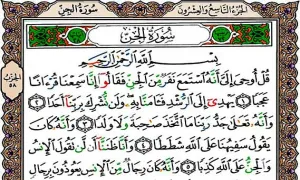 سُورَةُ الجِنّ
الجُزْءُ التَّاسِعُ وَالعِشْرُونَ
سُورَةُ الجِنّ
بِسْمِ اللَّهِ الرَّحْمَٰنِ الرَّحِيمِ
قُلْ أُوحِيَ إِلَيَّ أَنَّهُ اسْتَمَعَ نَفَرٌ مِّنَ الْجِنِّ فَقَالُوا إِنَّا سَمِعْنَا قُرْآنًا
عَجَبًا ١ يَهْدِي إِلَى الرُّشْدِ فَآمَنَّا بِهِ وَلَن نُّشْرِكَ بِرَبِّنَا أَحَدًا ٢
وَأَنَّهُ تَعَالَىٰ جَدُّ رَبِّنَا مَا اتَّخَذَ صَاحِبَةً وَلَا وَلَدًا ٣ وَأَنَّهُ كَانَ
يَقُولُ سَفِيهُنَا عَلَى اللَّهِ شَطَطًا ٤ وَأَنَّا ظَنَنَّا أَن لَّن تَقُولَ الْإِنسُ
وَالْجِنُّ عَلَى اللَّهِ كَذِبًا ٥ وَأَنَّهُ كَانَ رِجَالٌ مِّنَ الْإِنسِ يَعُوذُونَ بِرِجَالٍ
الحِزْبُ
٥٨